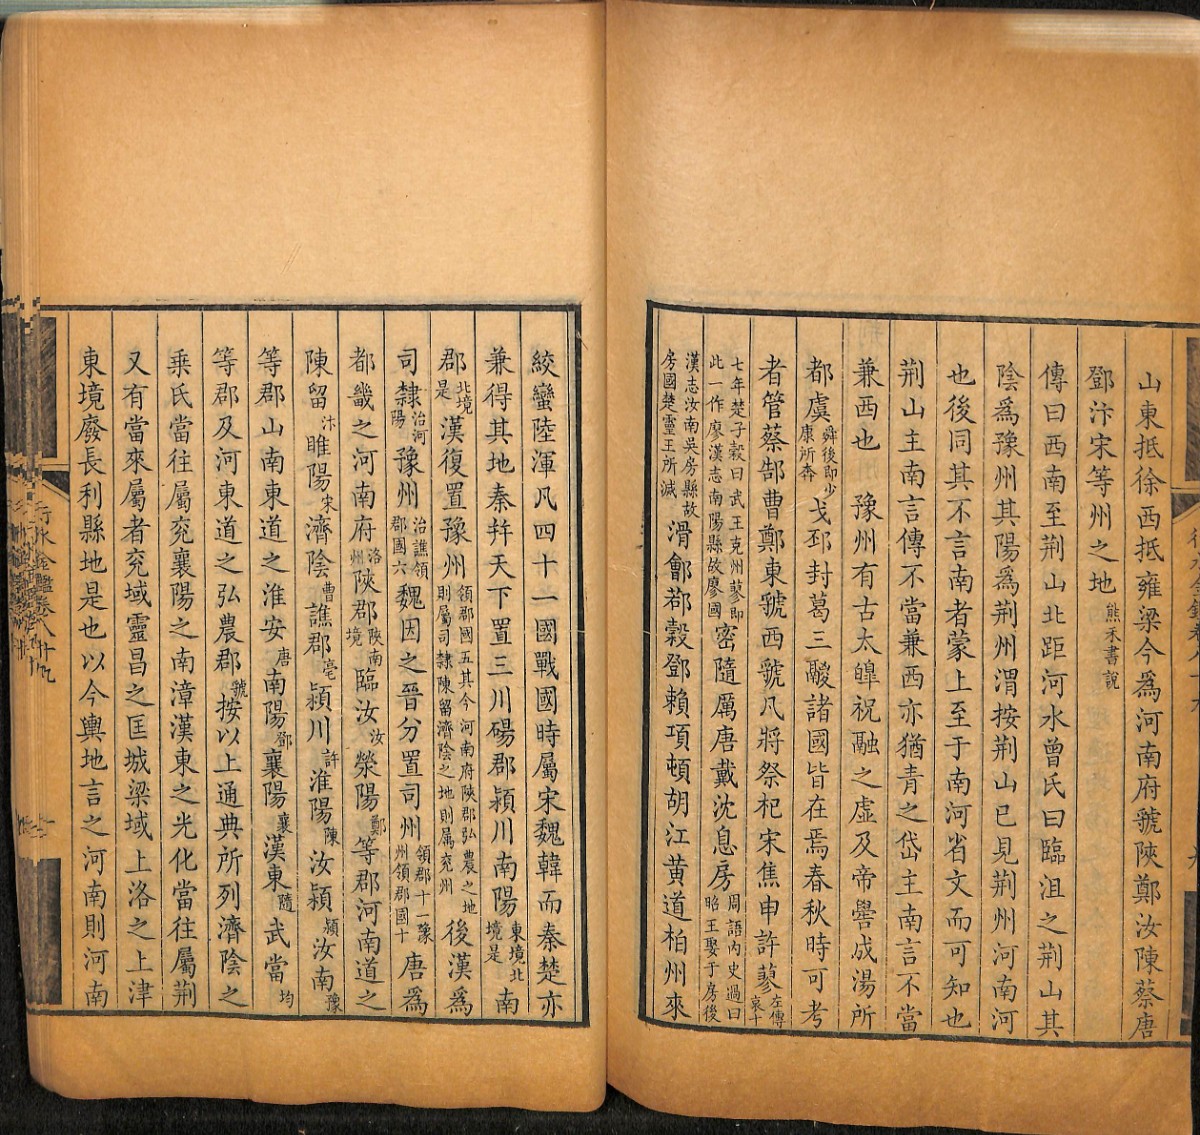 山東抵徐西抵雍梁今爲河南府虢陝鄭汝陳蔡唐
鄧汴宋等州之地熊禾書説
傳曰西南至荆山北距河水曾氏曰臨沮之荆山其
陰爲豫州其陽爲荆州渭按荆山已見荆州河南河
也後同其不言南者蒙上至于南河省文而可知也
荆山主南言傳不當兼西亦猶青之岱主南言不當
兼西也 豫州有古太皥祝融之虚及帝嚳成湯所
都虞舜後即少康所奔戈邳封葛三鬷諸國皆在焉春秋時可考
者管蔡郜曹鄭東虢西虢凡將祭杞宋焦申許蓼左傳哀十
七年楚子穀曰武王克州蓼即此一作廖漢志南陽縣故廖國密隨厲唐戴沈息房周語内史過曰昭王娶于房後
漢志汝南吳房縣故房國楚靈王所滅滑鄶鄀穀鄧賴項頓胡江黄道柏州來
絞蠻陸渾凡四十一國戰國時屬宋魏韓而秦楚亦
兼得其地秦幷天下置三川碭郡潁川南陽東境北境是南
郡北境是漢復置豫州領郡國五其今河南府陝郡弘農之地則屬司隸陳留濟陰之地則屬兖州後漢爲
司隸治河陽豫州治譙領郡國六魏因之晉分置司州領郡十一豫州領郡國十唐爲
都畿之河南府洛州陝郡陝南境臨汝汝滎陽鄭等郡河南道之
陳留汴睢陽宋濟陰曹譙郡亳潁川許淮陽陳汝潁潁汝南豫
等郡山南東道之淮安唐南陽鄧襄陽襄漢東隨武當均
等郡及河東道之弘農郡虢按以上通典所列濟陰之
乗氏當往屬兖襄陽之南漳漢東之光化當往屬荆
又有當來屬者兖域靈昌之匡城梁域上洛之上津
東境廢長利縣地是也以今輿地言之河南則河南